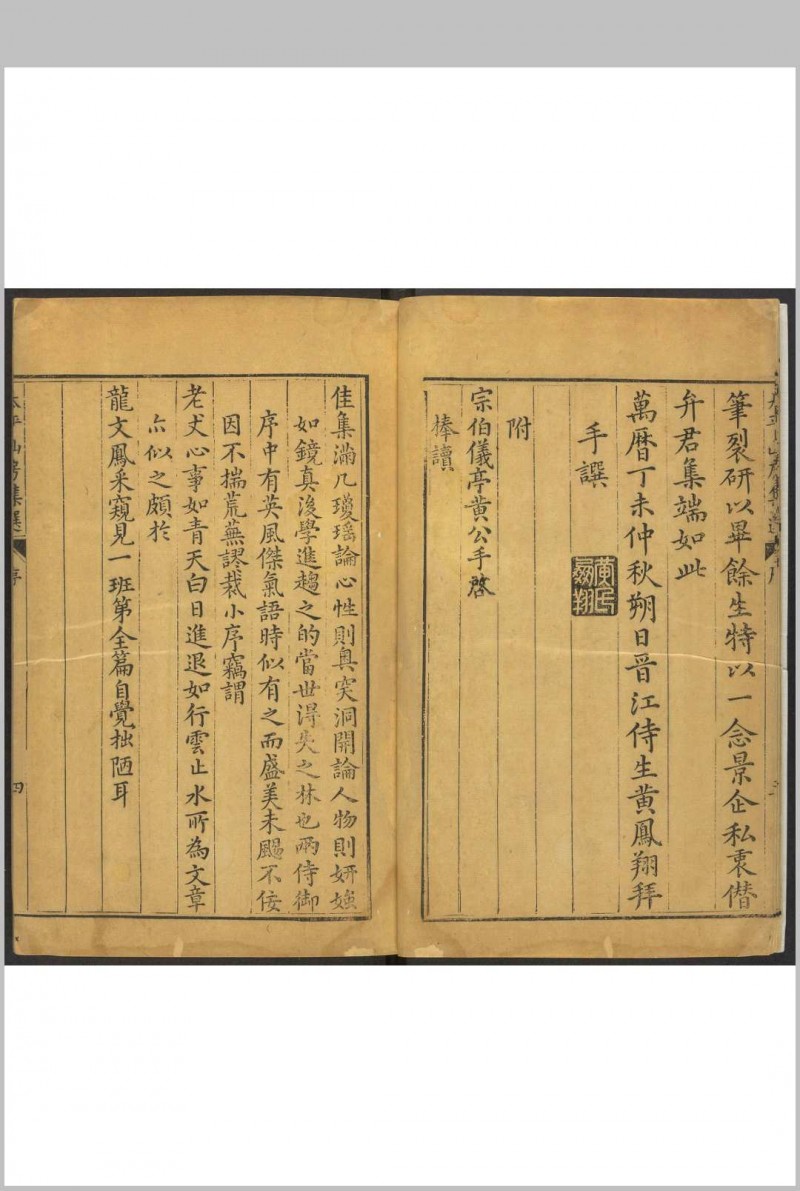 筆裂研以畢餘生特以一念景企私衷僣
弁君集端如此
萬曆丁未仲秋朔日晋江侍生黄鳳翔拜
手譔
黄氏鳳翔
附
宗伯儀亭黄公手啓
捧讀
佳集滿几瓊瑶論心性則奥突洞開論人物則妍媸
如鏡真後學進趨之的當世得失之林也兩侍御
序中有英風傑氣語時似有之而盛美未颺不佞
因不揣荒蕪謬裁小序竊謂
老丈心事如青天白日進退如行雲止水所為文章
亦似之頗於
龍文鳳采窺見一班第全篇自覺拙陋耳
山房集選
序
四